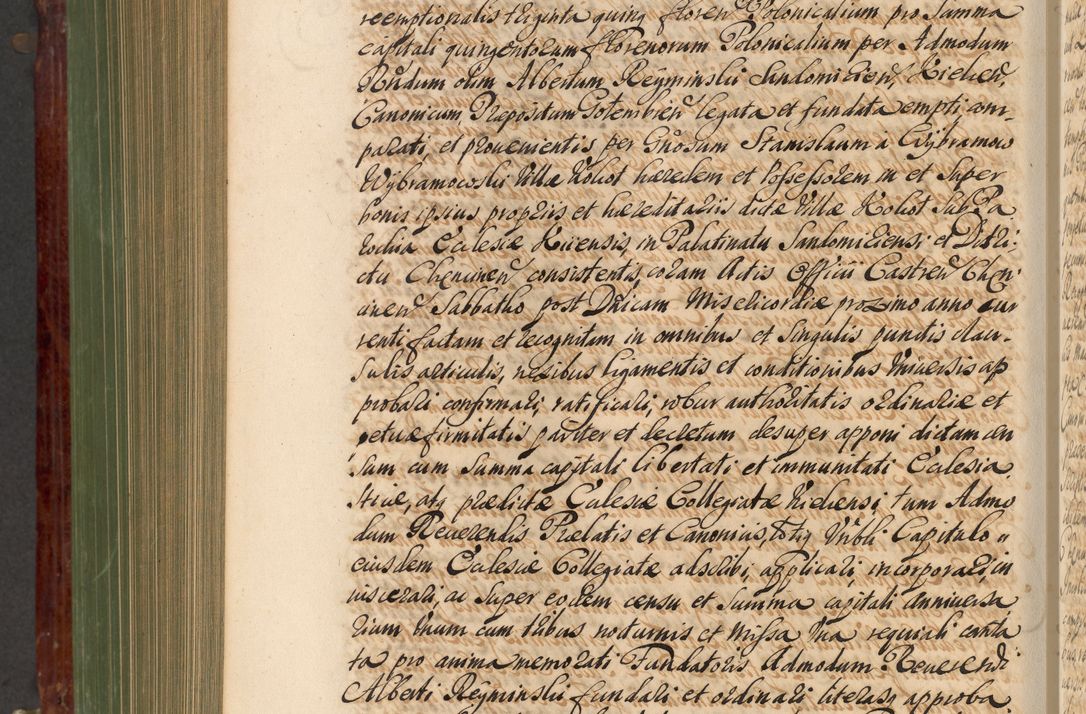 reemptionalis triginta quinq floren Polonicalium pro Summa
capitali quingentorum florenorum Polonicalium per Admodum
Rndum olim Albertum Reyminski Sandomirien, Kielcen,
Canonicum, Præpositum Gotembien legata et fundata empti com-
parati, et provenientis per Gnosum Stanislaum à Wybramow
Wybramowski Villæ Kolıot hæredem et Possessorem in et super
bonis ipsius proprijs et hæreditarijs dictæ Villæ Sub Pa
rochia Ecclesiæ Kiiensis, in Palatinatu Sandomiriensi et Distri-
ctu Chencinen consistentis, coram Actis Officii Castren Chen-
cinen Sabbatho post Dnicam Misericordiæ proximo anno cur
renti factam et recognitam in omnibus et Singulis punctis clau-
sulis articulis, nexibus ligamentis et conditionibus Universis ap
probari confirmari, ratificari, robur authoritatis ordinariæ et
petuæ firmitatis pariter et decretum desuper apponi dictam cen
sum cum Summa capitali libertati et immunitati Ecclesia
sticæ, atq prædictæ Ecclesiæ Collegiatæ Kielcensi, tum Admo
dum Reverendis Prælatis et Canonicis, totiq Vnbli Capitulo
eiusdem Ecclesiæ Collegiatæ adscribi, applicari incorporari, in
viscerari, ac Super eodem censu et Summa capitali Anniversa
rium Unum cum tribus nocturnis et Missa Una requiali canta
ta pro anima memorati Fundatoris Admodum Reverendi
Alberti Reyminski fundari et ordinari literasq approba